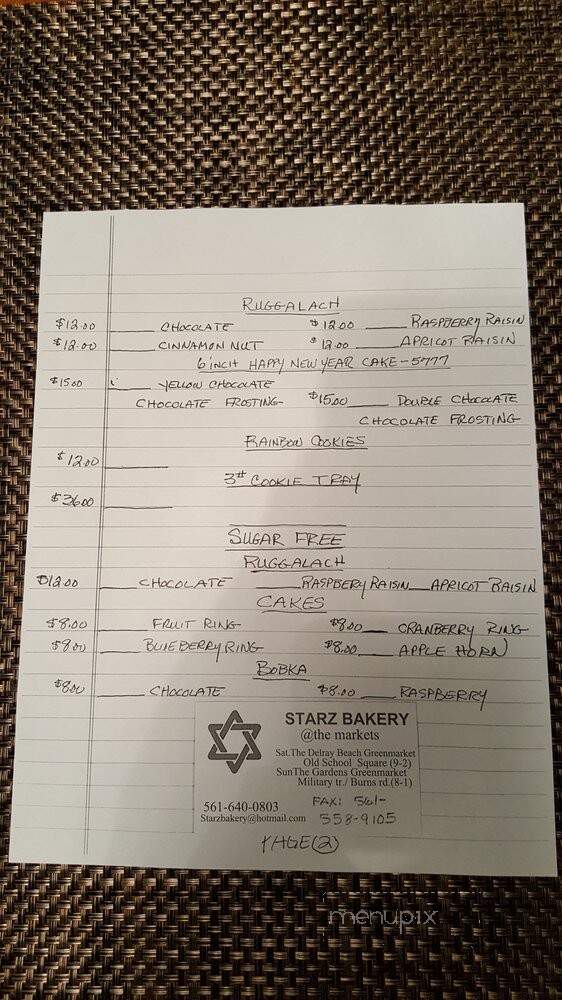 RUGGALACH
$12.00 ______ CHOCOLATE $12.00 ____ RASPBERRY RAISIN
$12.00 ______ CINNAMON NUT $12.00 ____ APRICOT RAISIN
6 INCH HAPPY NEW YEAR CAKE-5777
$15.00 ____ YELLOW CHOCOLATE
CHOCOLATE FROSTING- $15.00 ____ DOUBLE CHOCOLATE
CHOCOLATE FROSTING
RAINBOW COOKIES
$12.00 ______
3# COOKIE TRAY
$36.00 ______
SUGAR FREE
RUGGALACH
$12.00 ____ CHOCOLATE ____ RASPBERY RAISIN ____ APRICOT RAISIN
CAKES
$8.00 ____ FRUIT RING $8.00 ____ CRANBERRY RING
$8.00 ____ BLUEBERRY RING $8.00 ____ APPLE HORN
BOBKA
$8.00 ____ CHOCOLATE $8.00 ____ RASPBERRY
STARZ BAKERY
@the markets
Sat.The Delray Beach Greenmarket
Old School Square (9-2)
SunThe Gardens Greenmarket
Military tr./ Burns rd.(8-1)
561-640-0803 FAX: 561-
Starzbakery@hotmail.com 558-9105
PAGE (2)
menupix